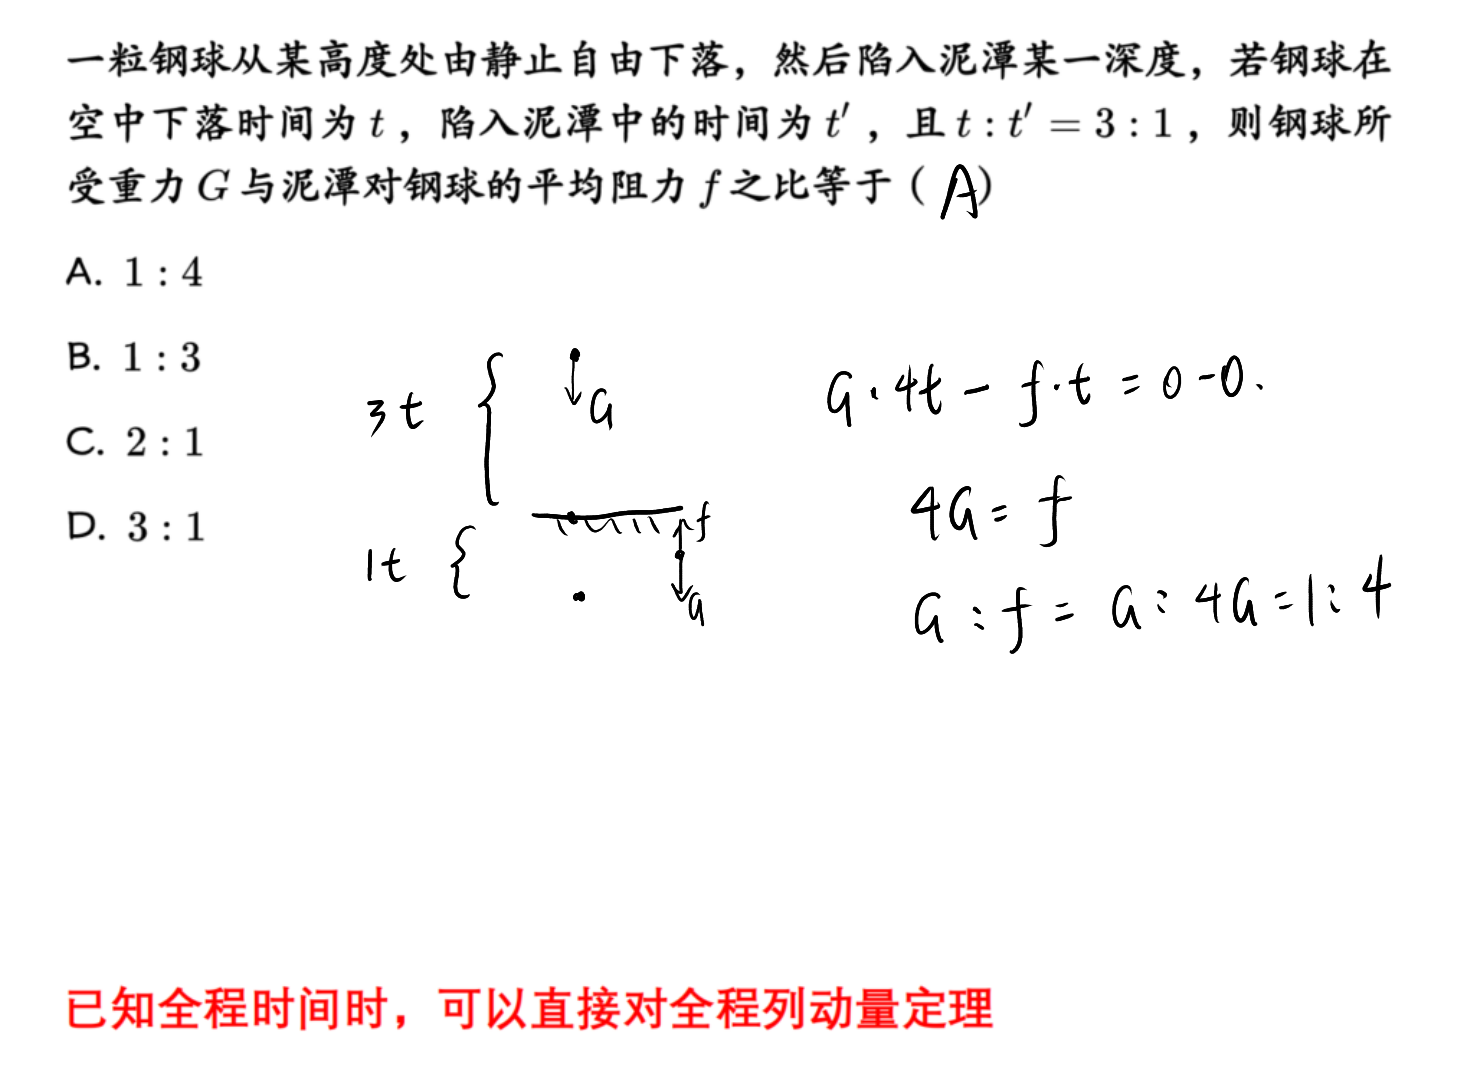 一粒钢球从某高度处由静止自由下落，然后陷入泥潭某一深度，若钢球在
空中下落时间为 t ，陷入泥潭中的时间为 t′ ，且 t : t′ = 3 : 1 ，则钢球所
受重力 G 与泥潭对钢球的平均阻力 f 之比等于 ( A )
A. 1 : 4
B. 1 : 3
C. 2 : 1
D. 3 : 1
3t
G
G·4t - f·t = 0-0.
4G = f
f
1t
G
G : f = G : 4G = 1 : 4
已知全程时间时，可以直接对全程列动量定理